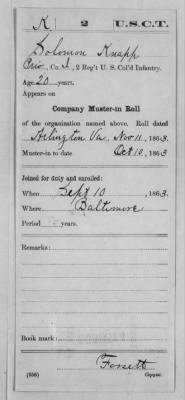 K | 2 | U.S.C.T.
Solomon Knapp
Priv., Co. I, 2 Reg't U. S. Col'd Infantry.
Age 20 years.
Appears on
Company Muster-in Roll
of the organization named above. Roll dated
Arlington Va, Nov 11, 1863.
Muster-in to date Oct 10, 1863
Joined for duty and enrolled:
When Sept 10, 1863.
Where Baltimore
Period years.
Remarks:
Book mark:
Fossett
(356) Copyist.